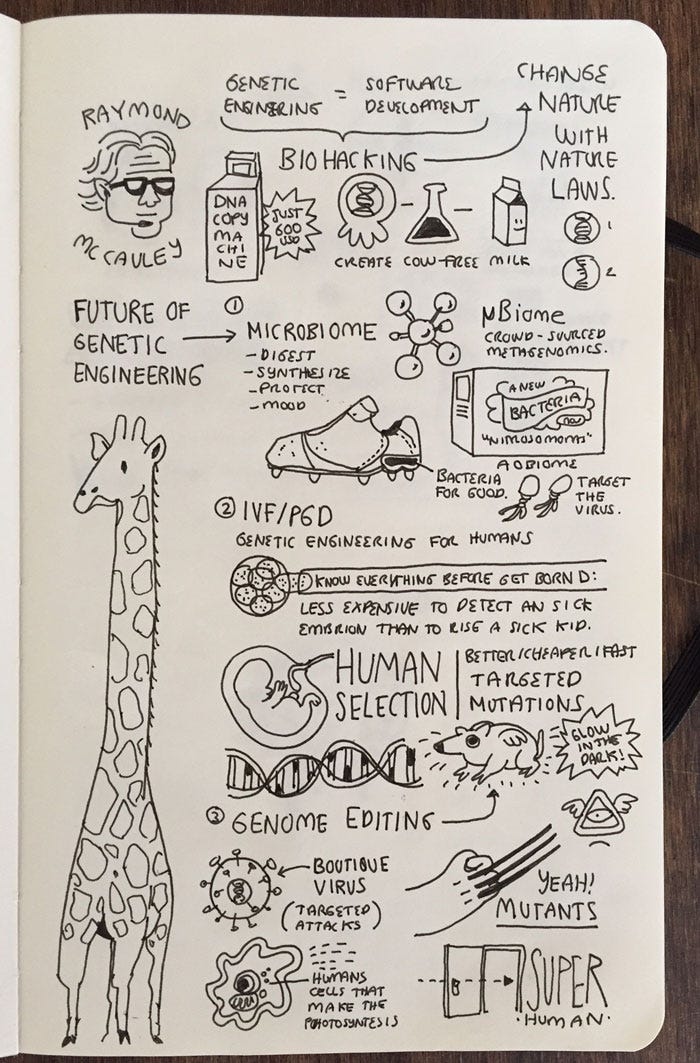 RAYMOND
MCCAULEY
GENETIC
ENGINEERING
=
SOFTWARE
DEVELOPMENT
CHANGE
NATURE
WITH
NATURE
LAWS.
1
2
BIOHACKING
DNA
COPY
MA
CHI
NE
JUST
600
USD
CREATE COW-FREE MILK
FUTURE OF
GENETIC
ENGINEERING
1
MICROBIOME
- DIGEST
- SYNTHESIZE
- PROTECT
- MOOD
µBiome
CROWD-SOURCED
METAGENOMICS.
A NEW
BACTERIA
NOW
AOBIOME
BACTERIA
FOR GOOD.
TARGET
THE
VIRUS.
2 IVF/PGD
GENETIC ENGINEERING FOR HUMANS
KNOW EVERYTHING BEFORE GET BORN D:
LESS EXPENSIVE TO DETECT AN SICK
EMBRION THAN TO RISE A SICK KID.
HUMAN
SELECTION
BETTER/CHEAPER/FAST
TARGETED
MUTATIONS
GLOW
IN THE
DARK!
3 GENOME EDITING
BOUTIQUE
VIRUS
(TARGETED
ATTACKS)
YEAH!
MUTANTS
HUMANS
CELLS THAT
MAKE THE
PHOTOSYNTESIS
SUPER
·HUMAN·